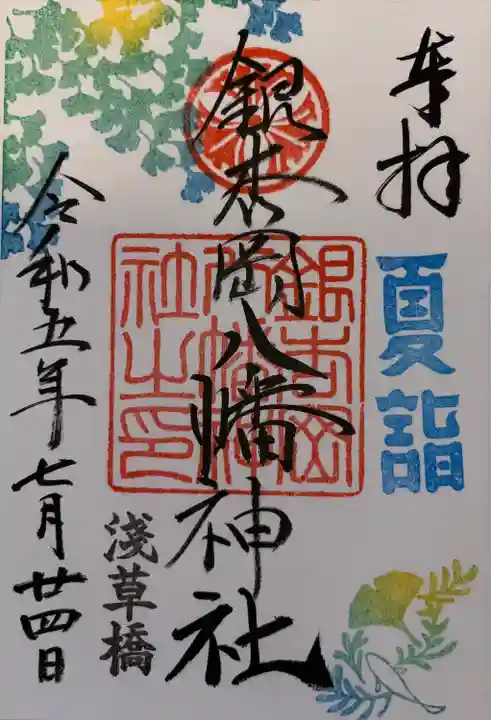 奉拝
夏詣
銀杏岡八幡神社
銀杏岡
八幡神
社之印
淺草橋
令和五年七月廿四日